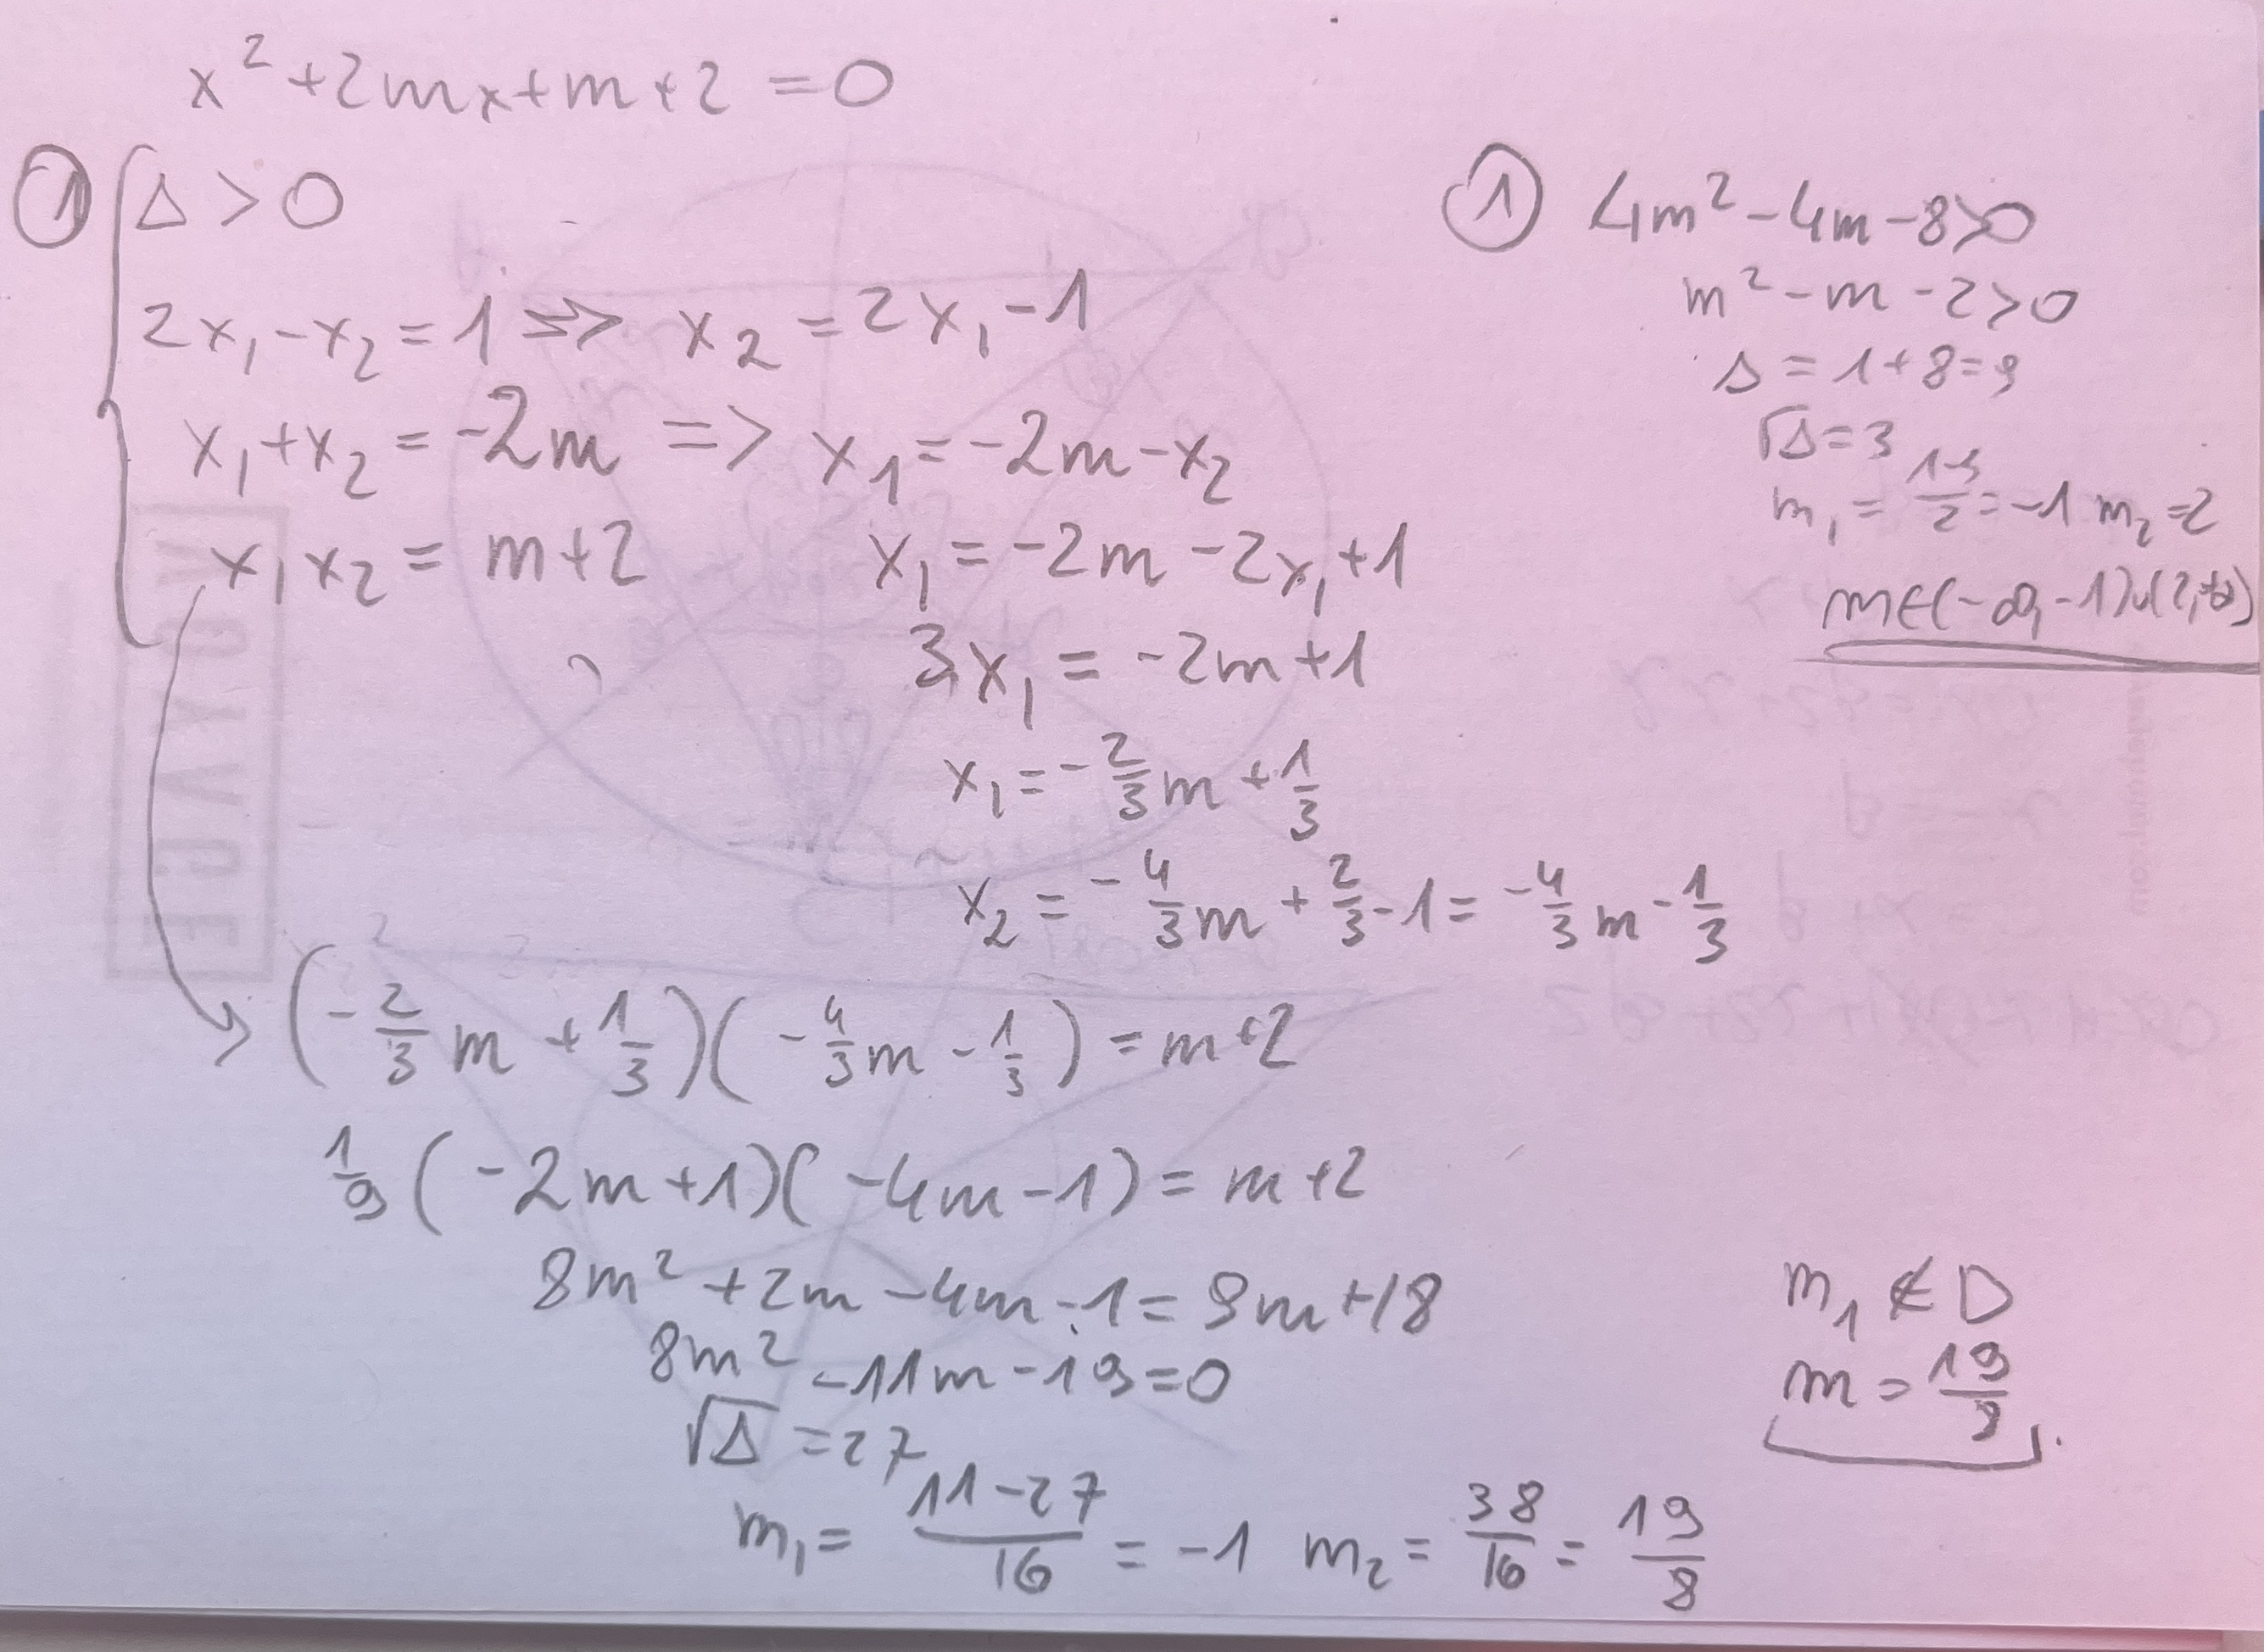 x² + 2mx + m + 2 = 0
① Δ > 0
2x₁ - x₂ = 1 => x₂ = 2x₁ - 1
x₁ + x₂ = -2m => x₁ = -2m - x₂
x₁x₂ = m + 2
x₁ = -2m - 2x₁ + 1
3x₁ = -2m + 1
x₁ = -2/3 m + 1/3
x₂ = -4/3 m + 2/3 - 1 = -4/3 m - 1/3
(-2/3 m + 1/3)(-4/3 m - 1/3) = m + 2
1/9 (-2m + 1)(-4m - 1) = m + 2
8m² + 2m - 4m - 1 = 9m + 18
8m² - 11m - 19 = 0
√Δ = 27
m₁ = (11 - 27)/16 = -1 m₂ = 38/16 = 19/8
① 4m² - 4m - 8 > 0
m² - m - 2 > 0
Δ = 1 + 8 = 9
√Δ = 3
m₁ = (1-3)/2 = -1 m₂ = 2
m ∈ (-∞, -1) ∪ (2, +∞)
m₁ ∉ D
m = 19/8
VOYAGE